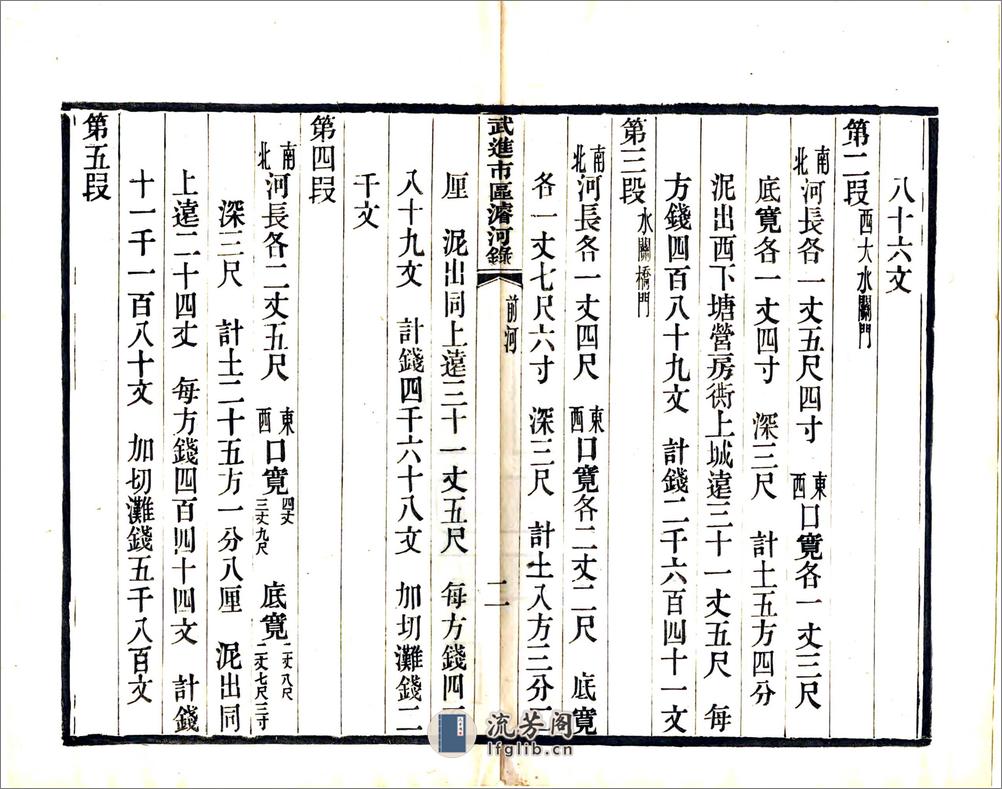 八十六文
第二段 西大水關門
南北河長各一丈五尺四寸 東西口寬各一丈三尺
底寬各一丈四寸 深三尺 計土五方四分
泥出西下塘營房衖上城遠三十一丈五尺 每
方錢四百八十九文 計錢二千六百四十一文
第三段 水關橋門
南北河長各一丈四尺 東西口寬各二丈二尺 底寬
各一丈七尺六寸 深三尺 計土八方三分
武進市區濬河錄 前河 二
厘 泥出同上遠三十一丈五尺 每方錢四
八十九文 計錢四千六十八文 加切灘錢二
千文
第四段
南北河長各二丈五尺 東西口寬四丈三丈九尺 底寬二丈八尺二丈七尺三寸
深三尺 計土二十五方一分八厘 泥出同
上遠二十四丈 每方錢四百四十四文 計錢
十一千一百八十文 加切灘錢五千八百文
第五段
流芳阁
lfglib.cn